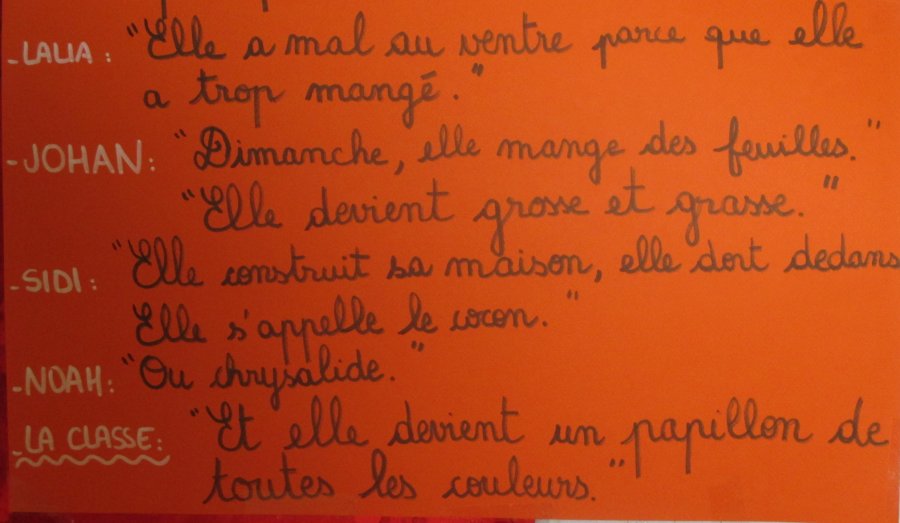 -LALIA : "Elle a mal au ventre parce que elle
a trop mangé."
-JOHAN : "Dimanche, elle mange des feuilles."
"Elle devient grosse et grasse."
-SIDI : "Elle construit sa maison, elle dort dedans
Elle s'appelle le cocon."
-NOAH : "Ou chrysalide."
-LA CLASSE : "Et elle devient un papillon de
toutes les couleurs."